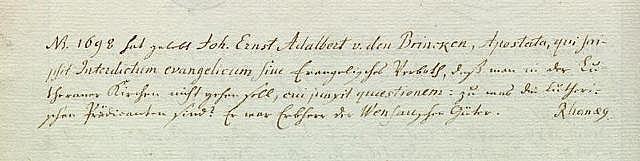 NB. 1698 hat gelebt Joh. Ernst Adalbert v. den Brincken, Apostata, qui scri-
psit Interdictum evangelicum, sive Evangelisches Verboth, daß man in der Lu-
theraner Kirchen nicht gehen soll, cui junxit questionem: zu was die Lutheri-
schen Prädicanten sind? Er war Erbherr der Wensauschen Güter.